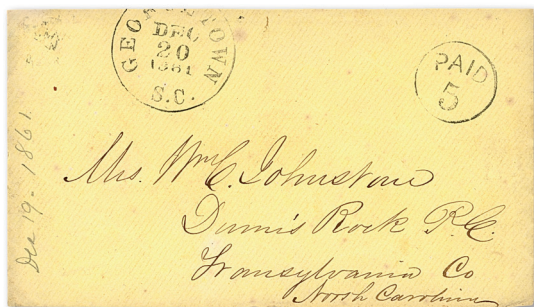 GEORGETOWN
DEC
20
1861
S.C.
PAID
5
Dec 19 - 1861
Mrs. Wm C. Johnstone
Dunn's Rock P.O.
Transylvania Co
North Carolina